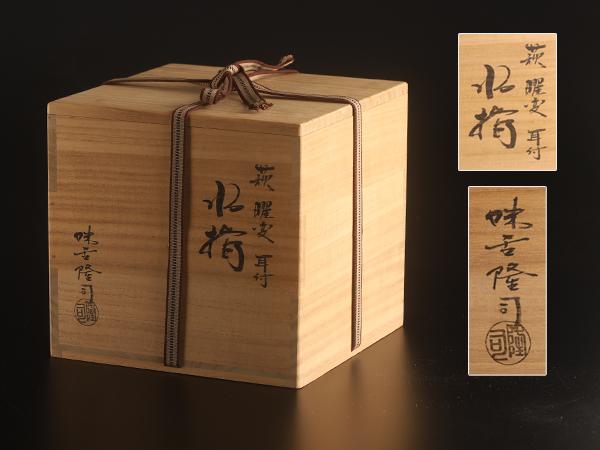 萩 曜変 耳付
水指
味舌隆司
隆司
萩 曜変 耳付
水指
味舌隆司
隆司